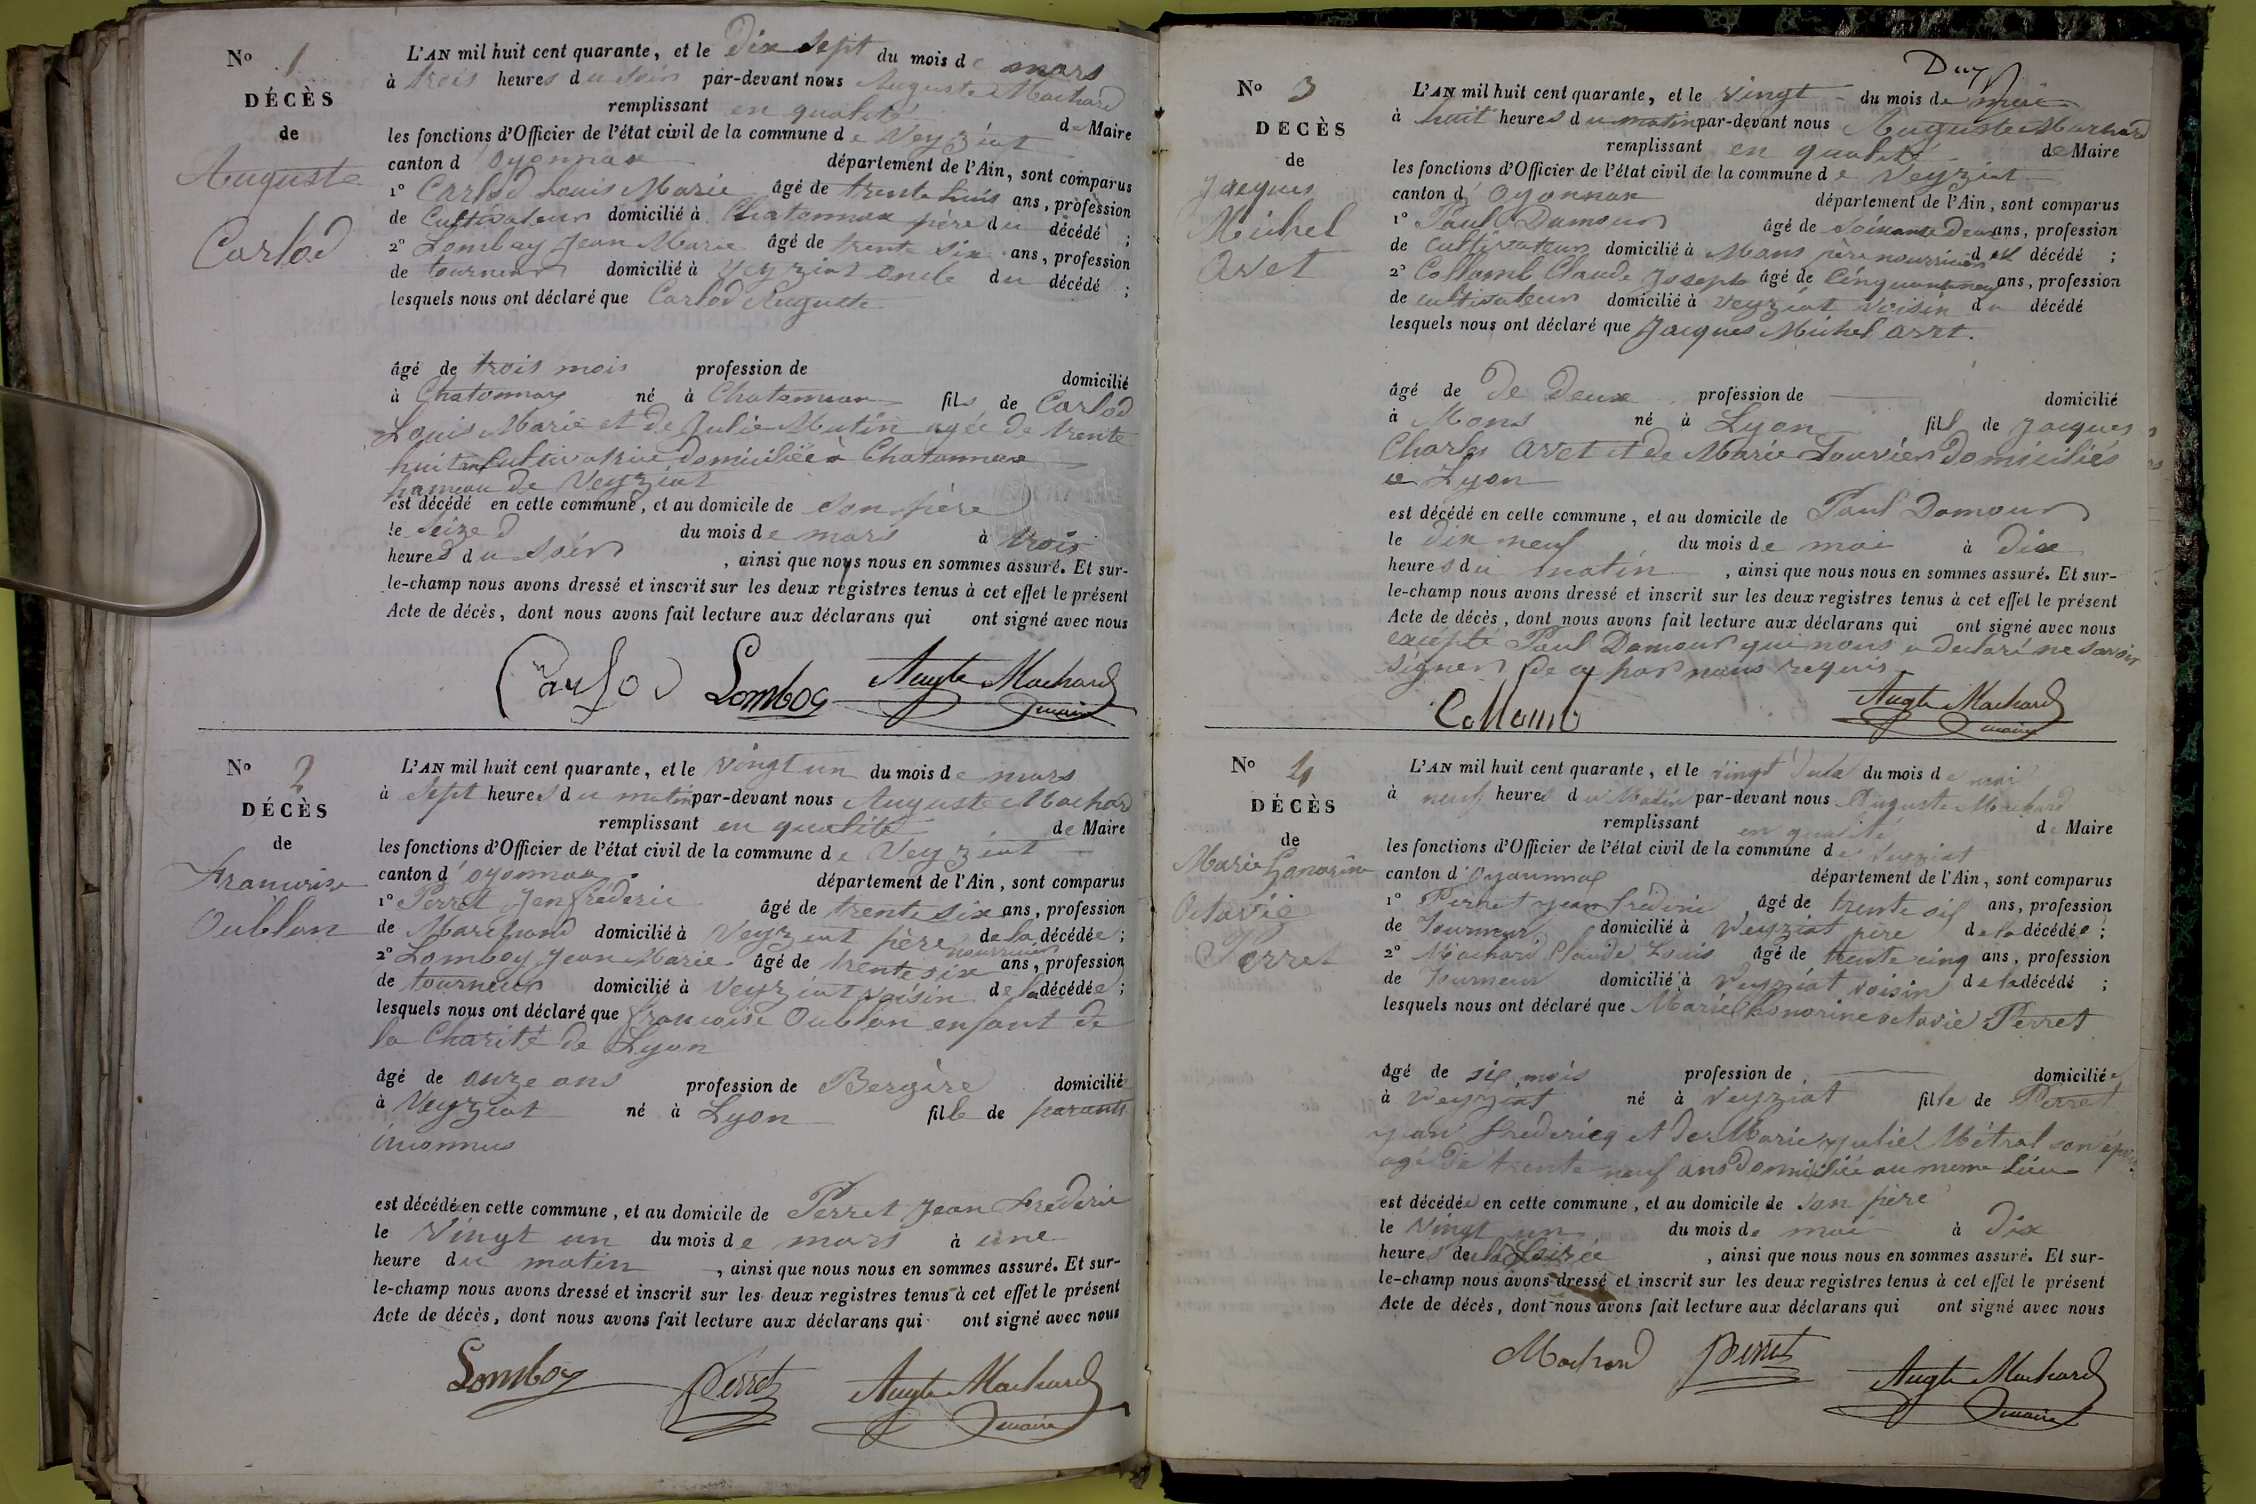 N° 1
DÉCÈS
de
Auguste
Carlod
L'AN mil huit cent quarante, et le Dix Sept du mois de mars
à trois heures du soir par-devant nous Auguste Machard
remplissant en qualité de Maire
les fonctions d'Officier de l'état civil de la commune de Veyziat
canton d'Oyonnax département de l'Ain, sont comparus
1° Carlod Louis Marie âgé de trente huit ans, profession
de Cultivateur domicilié à Chatonnax père du décédé ;
2° Lomboy Jean Marie âgé de trente six ans, profession
de tourneur domicilié à Veyziat oncle du décédé ;
lesquels nous ont déclaré que Carlod Auguste
âgé de trois mois profession de domicilié
à Chatonnax né à Chatonnax fils de Carlod
Louis Marie et de Julie Mutin agée de trente
huit ans Cultivatrice Domiciliée à Chatonnax
hameau de Veyziat
est décédé en cette commune, et au domicile de son père
le seize du mois de mars à trois
heures du soir , ainsi que nous nous en sommes assuré. Et sur-
le-champ nous avons dressé et inscrit sur les deux registres tenus à cet effet le présent
Acte de décès, dont nous avons fait lecture aux déclarans qui ont signé avec nous
Carlod Lomboy Augte Machard
maire
N° 2
DÉCÈS
de
Francoise
Oublon
L'AN mil huit cent quarante, et le vingt un du mois de mars
à Sept heures du matin par-devant nous Auguste Machard
remplissant en qualité de Maire
les fonctions d'Officier de l'état civil de la commune de Veyziat
canton d'oyonnax département de l'Ain, sont comparus
1° Perret Jean frédéric âgé de trente six ans, profession
de Marchand domicilié à Veyziat père nourricier de la décédée ;
2° Lomboy Jean Marie âgé de trente six ans, profession
de tourneur domicilié à Veyziat voisin de la décédée ;
lesquels nous ont déclaré que francoise Oublon enfant de
la Charité de Lyon
âgé de onze ans profession de Bergère domicilié
à Veyziat né à Lyon fille de parants
inconnus
est décédée en cette commune, et au domicile de Perret Jean Fréderic
le vingt un du mois de mars à une
heure du matin , ainsi que nous nous en sommes assuré. Et sur-
le-champ nous avons dressé et inscrit sur les deux registres tenus à cet effet le présent
Acte de décès, dont nous avons fait lecture aux déclarans qui ont signé avec nous
Lomboy Perret Augte Machard
maire
N° 3
DÉCÈS
de
Jacques
Michel
Avet
L'AN mil huit cent quarante, et le vingt du mois de mai
à huit heures du matin par-devant nous Auguste Machard
remplissant en qualité de Maire
les fonctions d'Officier de l'état civil de la commune de Veyziat
canton d'Oyonnax département de l'Ain, sont comparus
1° Paul Damour âgé de soixante Deux ans, profession
de cultivateur domicilié à Mons père nourricier du décédé ;
2° Collomb Claude Joseph âgé de Cinquante ans, profession
de cultivateur domicilié à Veyziat Voisin du décédé
lesquels nous ont déclaré que Jacques Michel avet.
âgé de De Deux profession de domicilié
à Mons né à Lyon fils de Jacques
Charles Avet et de Marie Louvier domiciliés
a Lyon
est décédé en cette commune, et au domicile de Paul Damour
le dix neuf du mois de mai à Dix
heures du matin , ainsi que nous nous en sommes assuré. Et sur-
le-champ nous avons dressé et inscrit sur les deux registres tenus à cet effet le présent
Acte de décès, dont nous avons fait lecture aux déclarans qui ont signé avec nous
excepté Paul Damour qui nous a declaré ne savoir
signer de ce par nous requis
Collomb Augte Machard
maire
N° 4
DÉCÈS
de
Marie honorine
Octavie
Perret
L'AN mil huit cent quarante, et le vingt deux du mois de mai
à neuf heures du Matin par-devant nous Auguste Machard
remplissant en qualité de Maire
les fonctions d'Officier de l'état civil de la commune de Veyziat
canton d'Oyonnax département de l'Ain, sont comparus
1° Perret jean frédéric âgé de trente six ans, profession
de Tourneur domicilié à Veyziat père de la décédée ;
2° Machard Claude Louis âgé de trente cinq ans, profession
de Tourneur domicilié à Veyziat voisin de la décédé ;
lesquels nous ont déclaré que Marie honorine octavie Perret
âgé de six mois profession de domiciliée
à Veyziat né à Veyziat fille de Perret
jean frédéricq et de Marie julie Métral son épouse
agé de trente neuf ans Domiciliée au meme lieu
est décédée en cette commune, et au domicile de son père
le Vingt un du mois de mai à Dix
heures de la soirée , ainsi que nous nous en sommes assuré. Et sur-
le-champ nous avons dressé et inscrit sur les deux registres tenus à cet effet le présent
Acte de décès, dont nous avons fait lecture aux déclarans qui ont signé avec nous
Machard Perret Augte Machard
maire